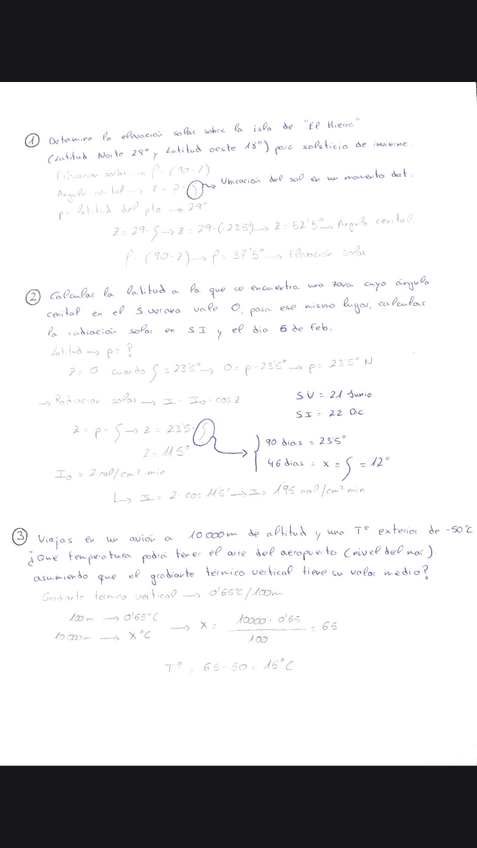 ① Determina la elevación solar sobre la isla de "El Hierro"
(Latitud Norte 29° y Latitud oeste 18°) para solsticio de invierno.
Elevación solar → β = (90-Z)
Angulo cenital → Z = P - ζ → Ubicación del sol en un momento det.
p = latitud del pto → 29°
Z = 29 - ζ → Z = 29 - (-23'5) → Z = 52'5° → Angulo cenital.
β = (90-Z) → β = 37'5° → Elevación solar
② Calcular la latitud a la que se encuentra una zona cuyo ángulo
cenital en el S. verano vale 0, para ese mismo lugar, calcular
la radiación solar en S.I y el día 6 de Feb.
Latitud → p = ?
Z = 0 cuando ζ = 23'5° → 0 = p - 23'5° → p = 23'5° N
→ Radiación solar → I = I₀ · cos Z
SV = 21 Junio
SI = 22 Dic
Z = p - ζ → Z = 23'5 - ζ
Z = 11'5°
90 dias = 23'5°
46 dias = x = ζ = 12°
I₀ = 2 cal/cm² min
↳ I = 2 · cos 11'5° → I = 1'95 cal/cm² min
③ Viajas en un avión a 10000m de altitud y una Tª exterior de -50°C
¿Que temperatura podrá tener el aire del aeropuerto (nivel del mar),
asumiendo que el gradiante térmico vertical tiene su valor medio?
Gradiante térmico vertical → 0'65°C/100m
100m → 0'65°C
10000m → X°C → X = 10000 · 0'65 / 100 = 65
Tª = 65 - 50 = 15°C